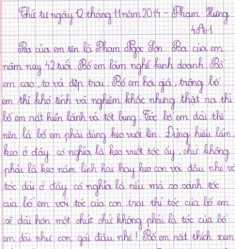 Thứ tư ngày 12 tháng 11 năm 2014 - Phạm Hưng
4A1
Ba của em tên là Phạm Ngọc Sơn. Ba của em
năm nay 42 tuổi. Bố em làm nghề kinh doanh. Bố
em cao, to và đẹp trai. Bố em hơi già, trông bố
em thì khó tính và nghiêm khắc nhưng thật ra thì
bố em rất hiền lành và tốt bụng. Tóc bố em dài thì
nên là bố em phải dùng keo vuốt lên. Đừng hiểu lầm,
keo ở đây có nghĩa là keo vuốt tóc ấy, chứ không
phải là keo nằm linh hai hay keo con voi đâu nhé và
tóc dài ở đây có nghĩa là nếu mà so sánh tóc
của bố em với tóc của con trai thì tóc của bố em
sẽ dài hơn một chút chứ không phải là tóc của bố
em dài như con gái đâu nhé! Bố em rất thích xem